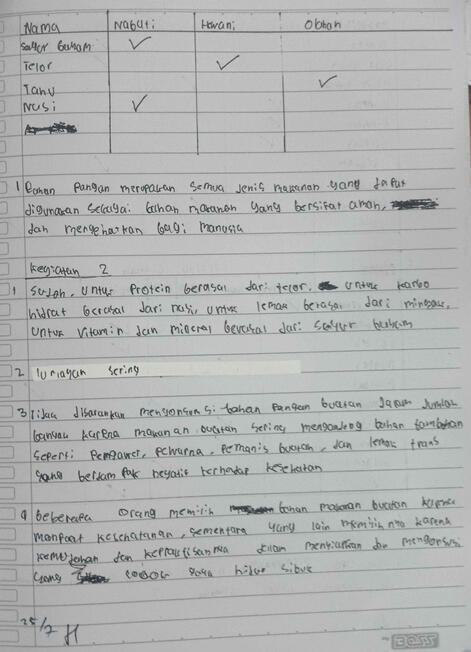 Nama Nabati Hewani Olahan
Sayur bayam ✓
Telor ✓
Tahu ✓
Nasi ✓
1 Bahan pangan merupakan semua jenis makanan yang dapat
digunakan sebagai bahan makanan yang bersifat aman,
dan mengehatkan bagi manusia
Kegiatan 2
1 Sudah, untuk protein berasal dari telor, untuk karbo
hidrat berasal dari nasi, untuk lemak berasal dari minyak,
untuk vitamin dan mineral berasal dari sayur bayam
2 lumayan sering
3 tidak disarankan mengonsumsi bahan pangan buatan dalam jumlah
banyak karena makanan buatan sering mengandung bahan tambahan
seperti pengawet, pewarna, pemanis buatan, dan lemak trans
yang berdampak negatif terhadap kesehatan
4 beberapa orang memilih bahan makanan buatan karena
manfaat kesehatanan, sementara yang lain memilih nya karena
kemudahan dan kepraktisannya dalam menyiapkan dan mengonsusi
yang cocok gaya hidup sibuk
25/7
BOSS